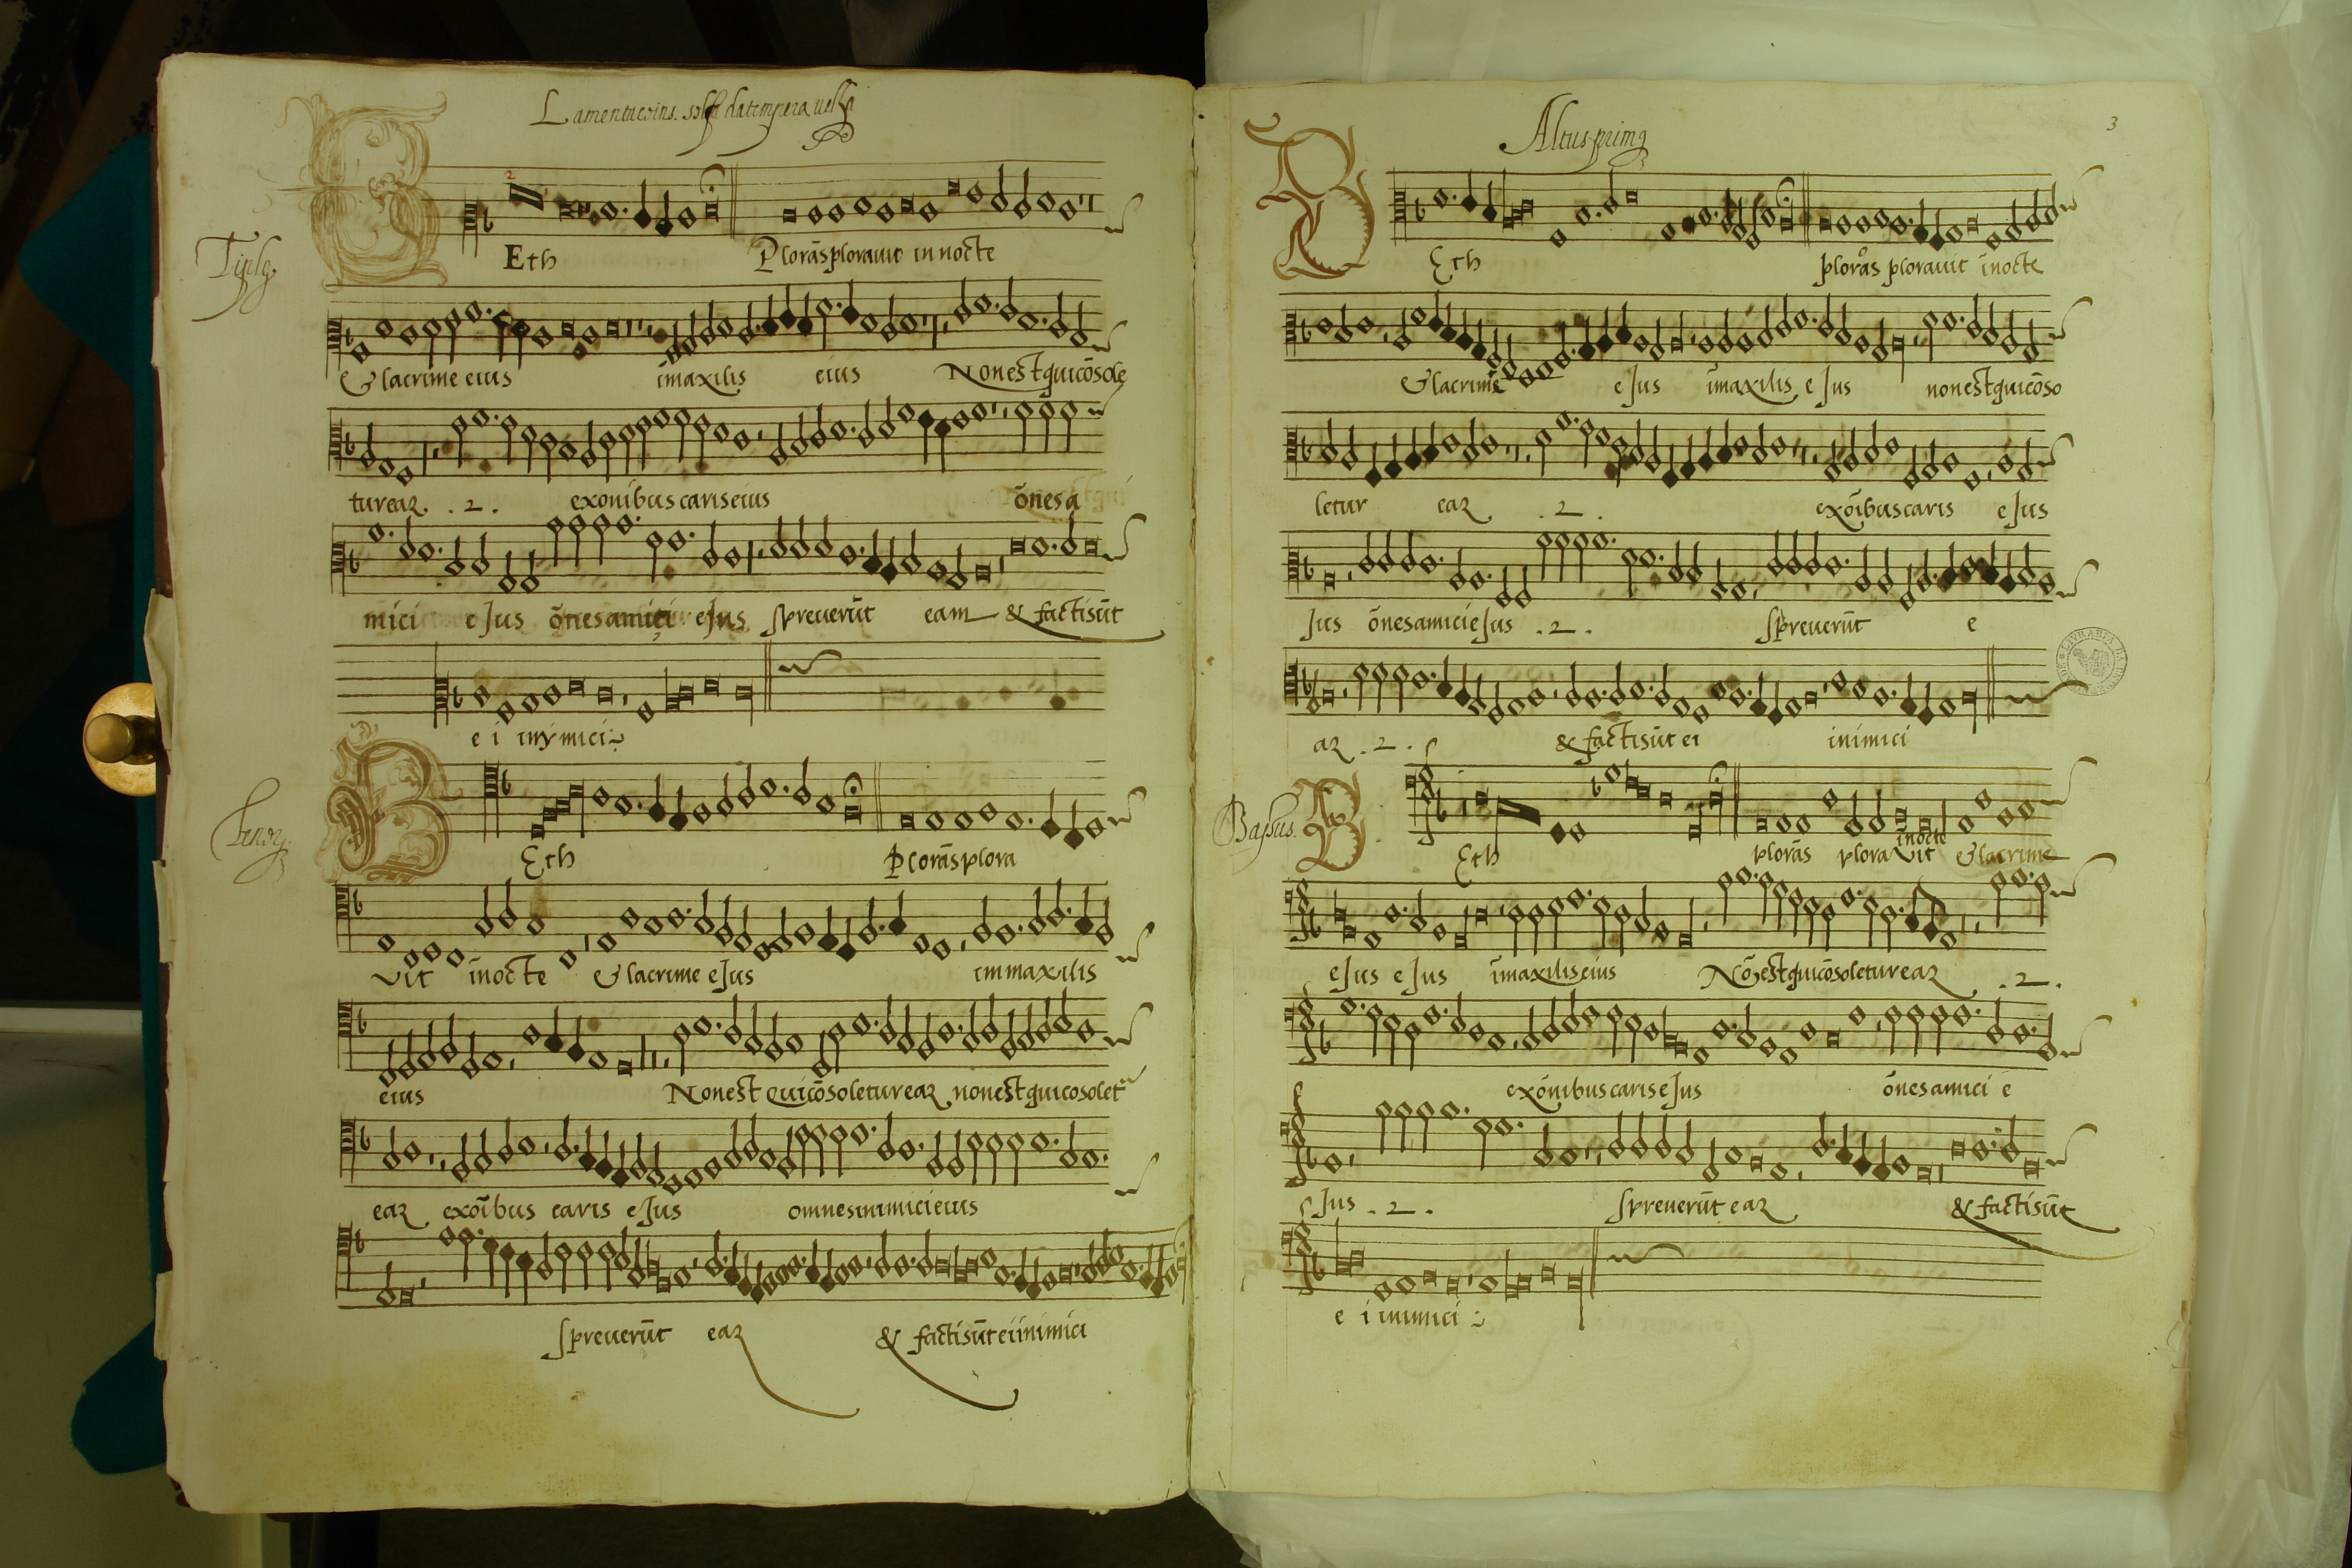 Tiplꝯ
Eth Plorãs plorauit in nocte
& lacrime eius ĩmaxilis eius Non est qui cõsole
tur eaʒ .2. ex onĩbus caris eius õnes a
mici eJus õnes amici eJus spreuerũt eam & facti sũt
e i inymici
Tenorꝯ
Eth Plorãs plora
vit ĩnocte & lacrime eJus immaxilis
eius Non est qui cõsoletur eaʒ non est qui cosolet
eaʒ ex oĩbus caris eJus omnes inimici eius
spreuerũt eaʒ & facti sũt ei inimici
3
Altus primꝯ
Eth plorãs plorauit ĩnocte
& lacrimẽ eJus ĩmaxilis eJus non est qui cõso
letur eaʒ .2. ex oĩbus caris eJus
Jus õnes amici eJus .2. spreuerũt e
aʒ .2. & facti sũt ei inimici
Bassus.
Eth plorãs ploravit ĩnocte & lacrime
eJus eJus ĩmaxilis eius Nõ est qui cõsoletur eaʒ .2.
ex õnibus caris eJus õnes amici e
Jus .2. spreuerũt eaʒ & facti sũt
e i inimici